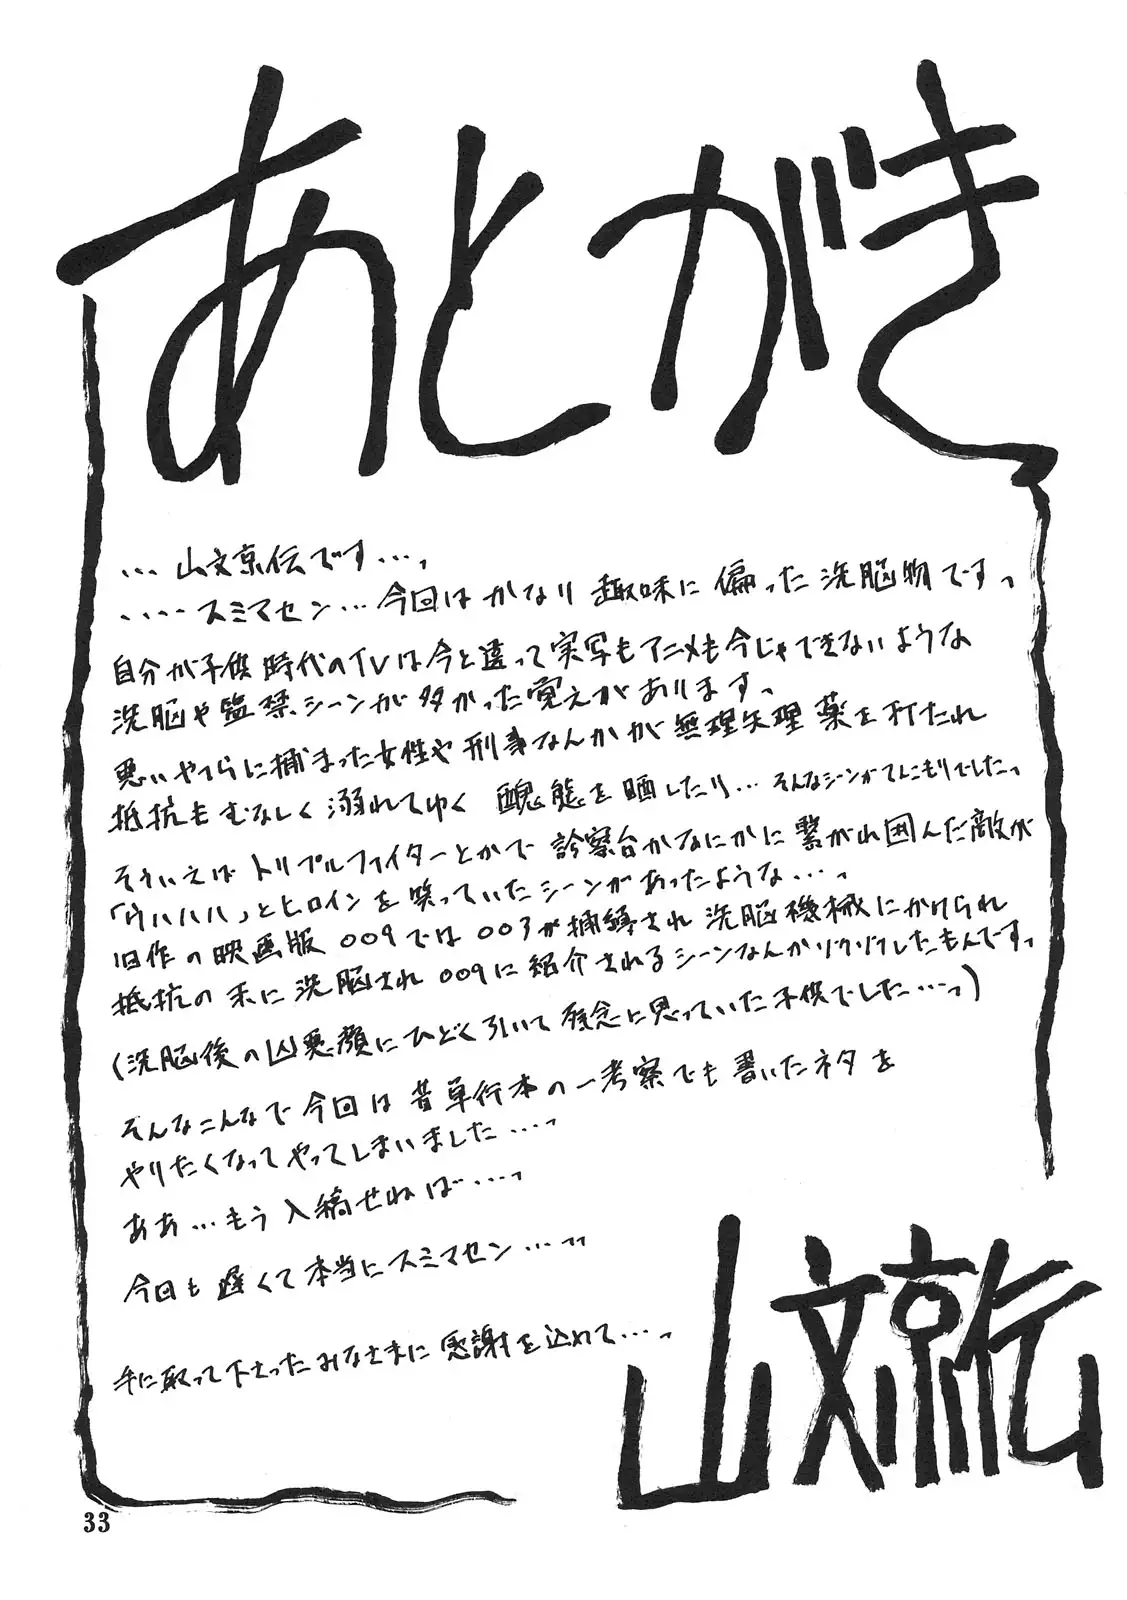 あとがき
・・・山文京伝です・・・。
・・・・スミマセン・・・今回はかなり趣味に偏った洗脳物です。
自分が子供時代のTVは今と違って実写もアニメも今じゃできないような
洗脳や監禁シーンが多かった覚えがあります。
悪いやつらに捕まった女性や刑事なんかが無理矢理薬を打たれ
抵抗もむなしく溺れてゆく醜態を晒したり…そんなシーンがてんこもりでしたっ
そういえばトリプルファイターとかで診察台かなにかに繋がれ囲んだ敵が
「ウハハハ」とヒロインを笑っていたシーンがあったような・・・。
旧作の映画版009では003が捕縛され洗脳機械にかけられ
抵抗の末に洗脳され009に紹介されるシーンなんかゾクゾクしたもんです。
(洗脳後の凶悪顔にひどく引いて残念に思っていた子供でした・・・っ)
そんなこんなで今回は昔単行本の一考察でも書いたネタを
やりたくなってやってしまいました・・・。
ああ・・・もう入稿せねば・・・。
今回も遅くて本当にスミマセン・・・っっ
手に取って下さったみなさまに感謝を込めて・・・。
山文京伝
33